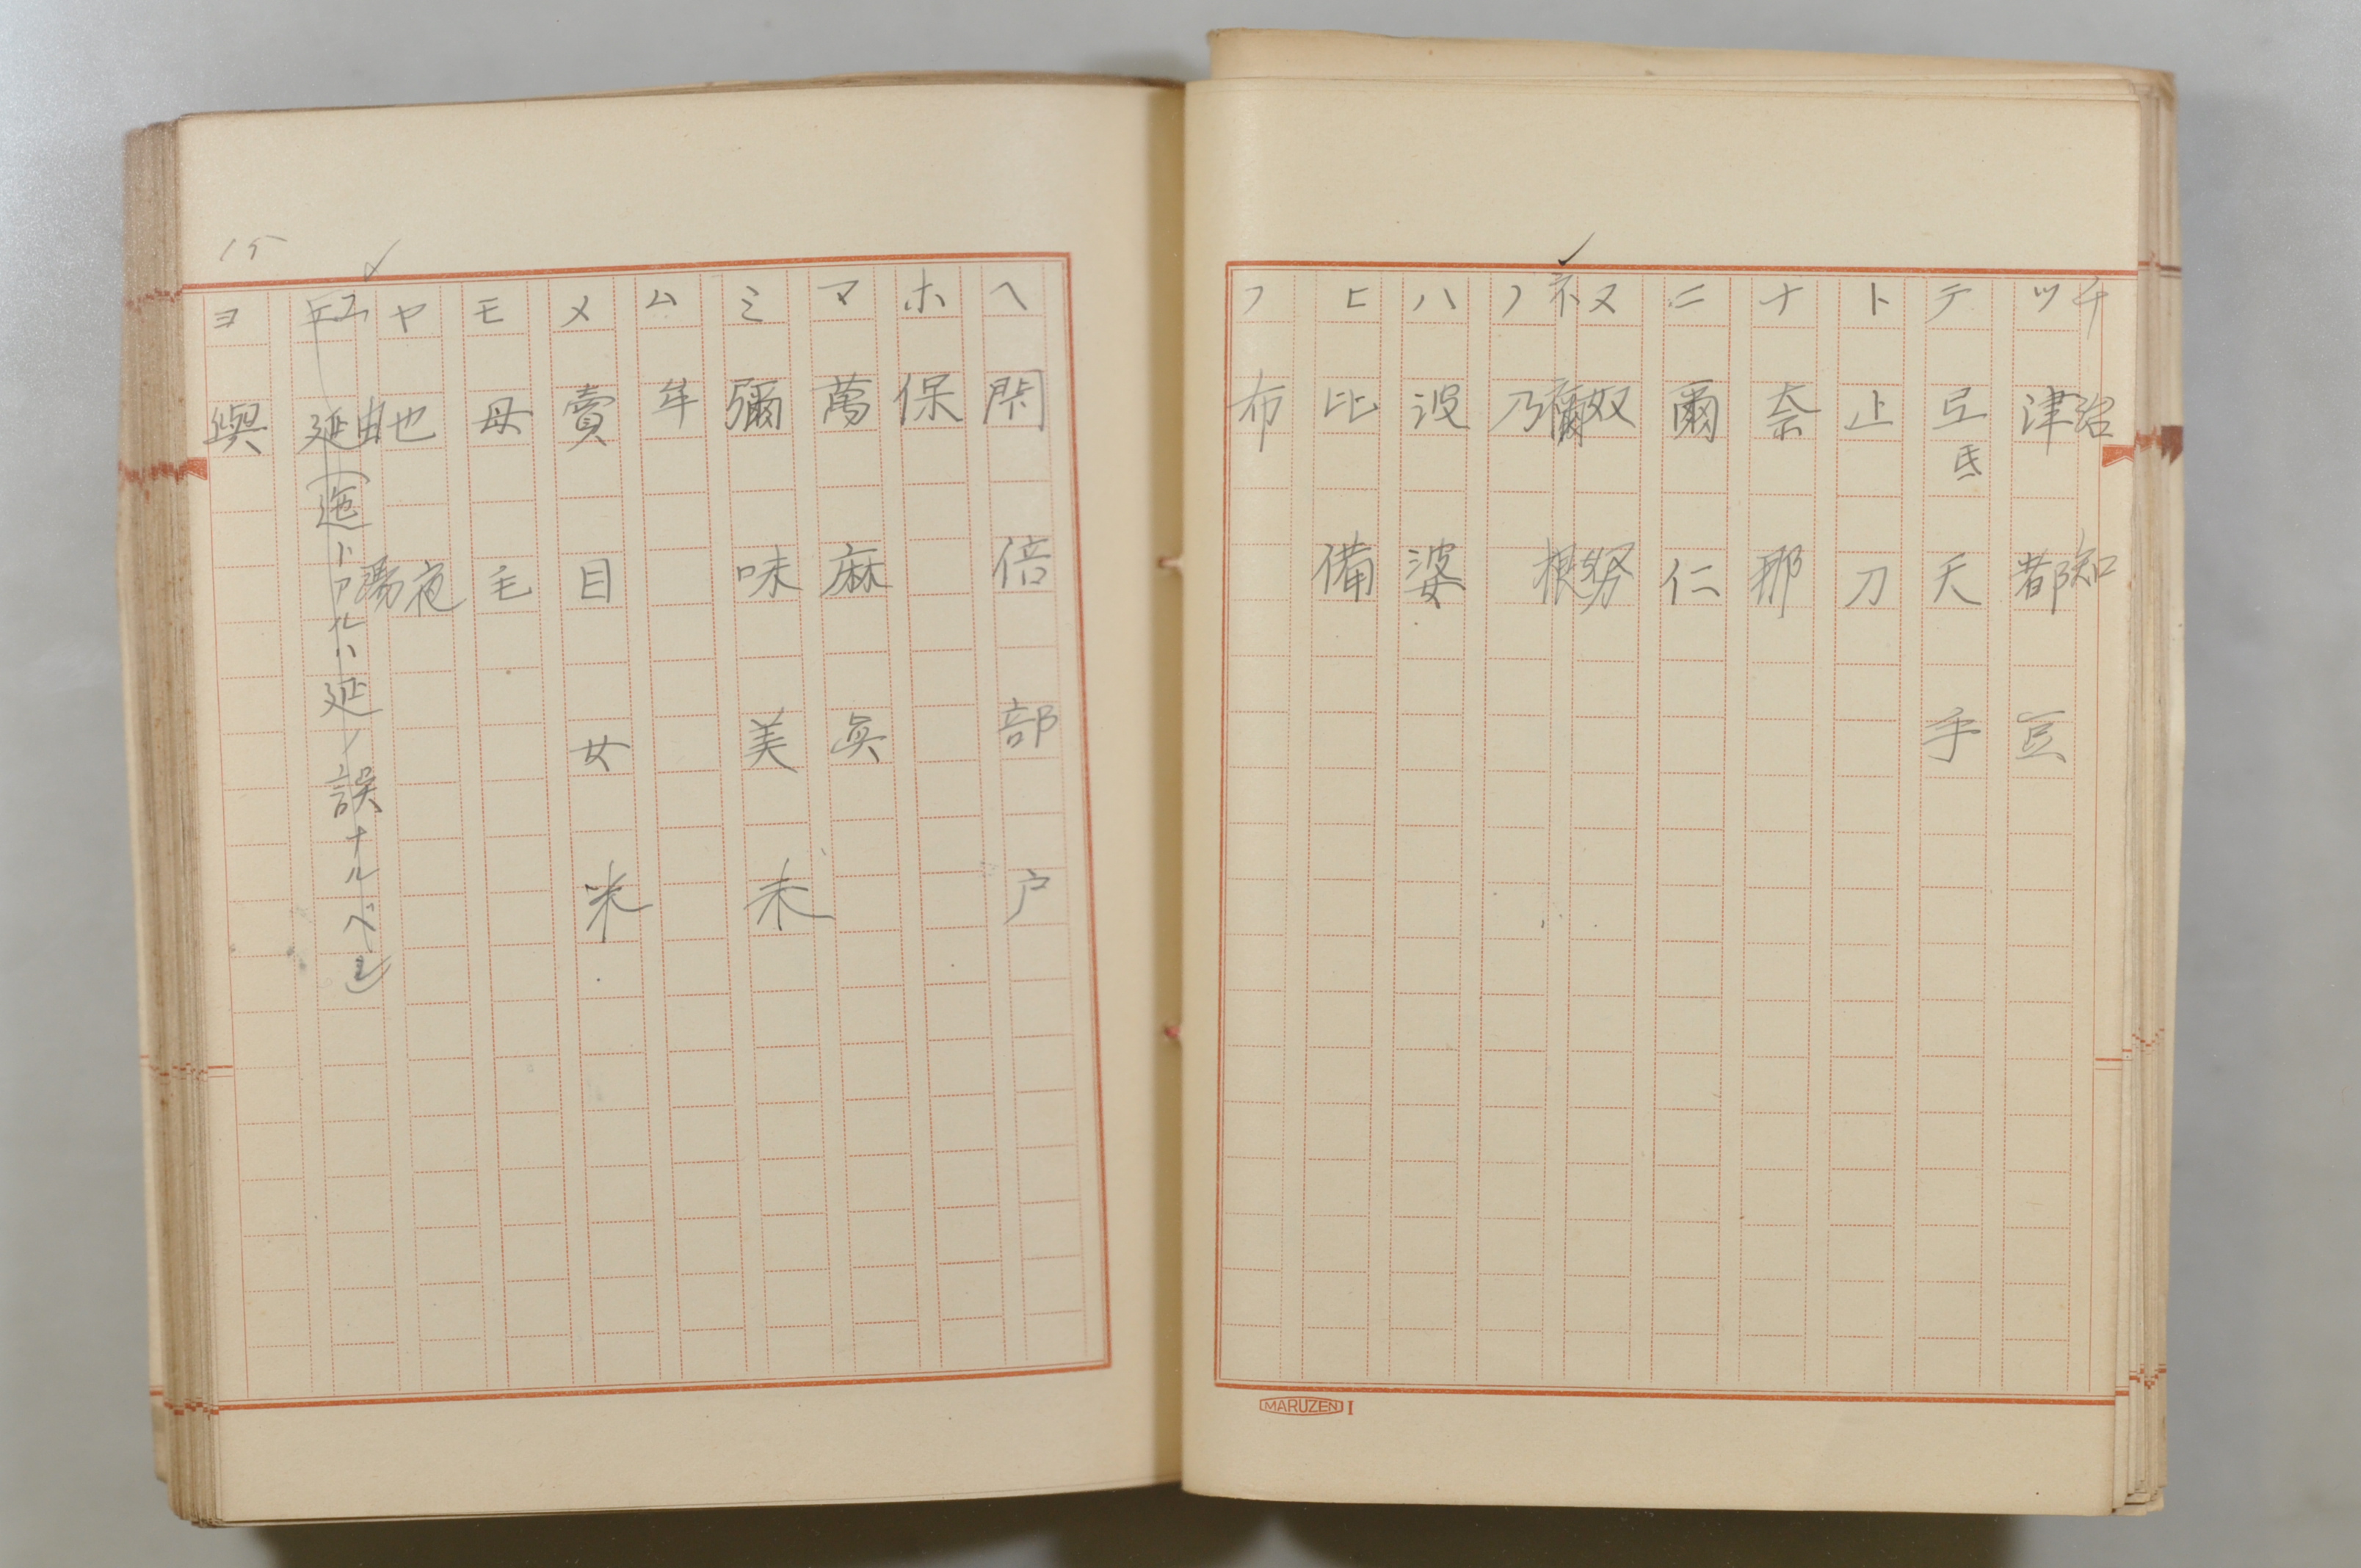 チ 治 知
ツ 津 都 豆
テ 弖 氐 天 手
ト 止 刀
ナ 奈 那
ニ 爾 仁
ヌ 奴 努
ネ 禰 根
ノ 乃
ハ 波 婆
ヒ 比 備
フ 布
MARUZEN I
15
ヘ 閇 倍 部 戸
ホ 保
マ 萬 麻 眞
ミ 彌 味 美 未
ム 牟
メ 賣 目 女 米
モ 母 毛
ヤ 也 夜
ユ 由 湯
エ 延(迤トアルハ延ノ誤ナルベシ)
ヨ 與